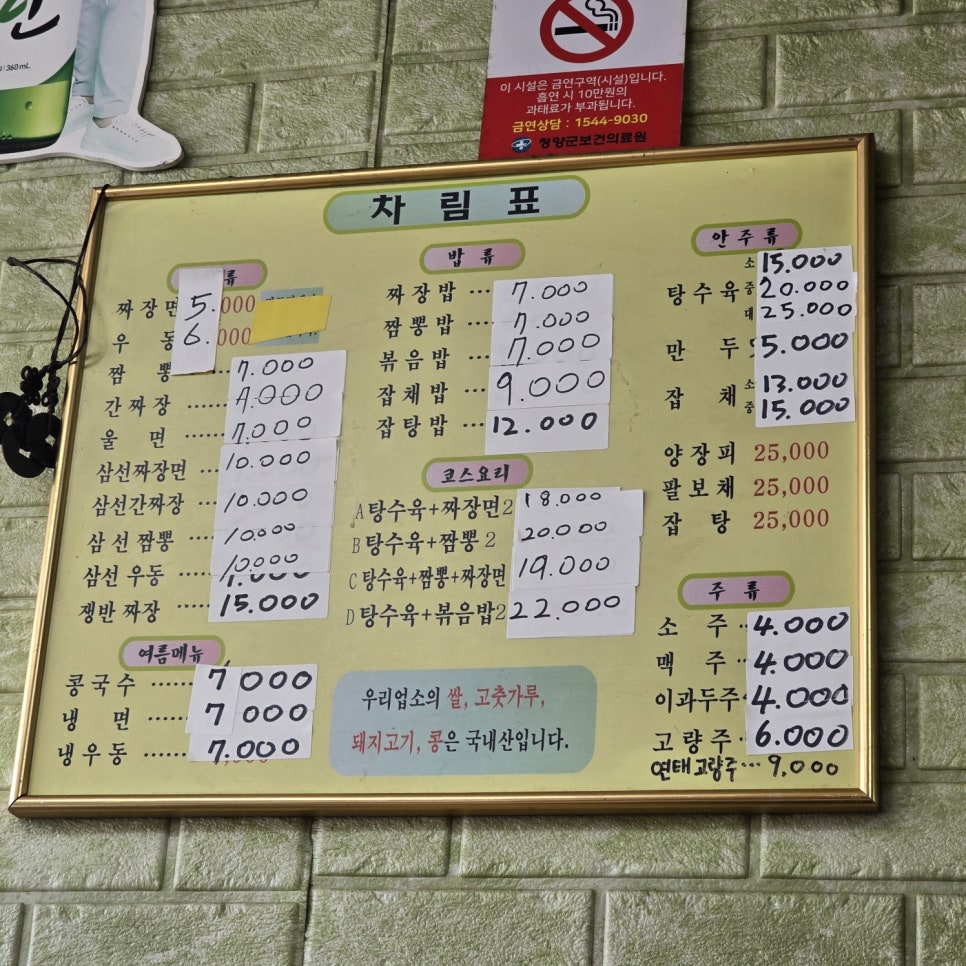 인
360mL
이 시설은 금연구역(시설)입니다.
흡연 시 10만원의
과태료가 부과됩니다.
금연상담 : 1544-9030
청양군보건의료원
차림표
류
짜장면 5.000
우동 6.000
짬뽕 7.000
간짜장 …… 7.000
울면 …… 7.000
삼선짜장면 … 10.000
삼선간짜장 … 10.000
삼선짬뽕 … 10.000
삼선우동 … 10.000
쟁반짜장 …… 15.000
여름메뉴
콩국수 …… 7000
냉면 …… 7000
냉우동 …… 7.000
밥류
짜장밥 … 7.000
짬뽕밥 … 7.000
볶음밥 … 7.000
잡채밥 … 9.000
잡탕밥 … 12.000
코스요리
A 탕수육+짜장면2 18.000
B 탕수육+짬뽕2 20.000
C 탕수육+짬뽕+짜장면 19.000
D 탕수육+볶음밥2 22.000
우리업소의 쌀, 고춧가루,
돼지고기, 콩은 국내산입니다.
안주류
소 15.000
탕수육 중 20.000
대 25.000
만두 5.000
잡채 소 13.000
중 15.000
양장피 25,000
팔보채 25,000
잡탕 25,000
주류
소주 4.000
맥주 4.000
이과두주 4.000
고량주 6.000
연태고량주 … 9.000